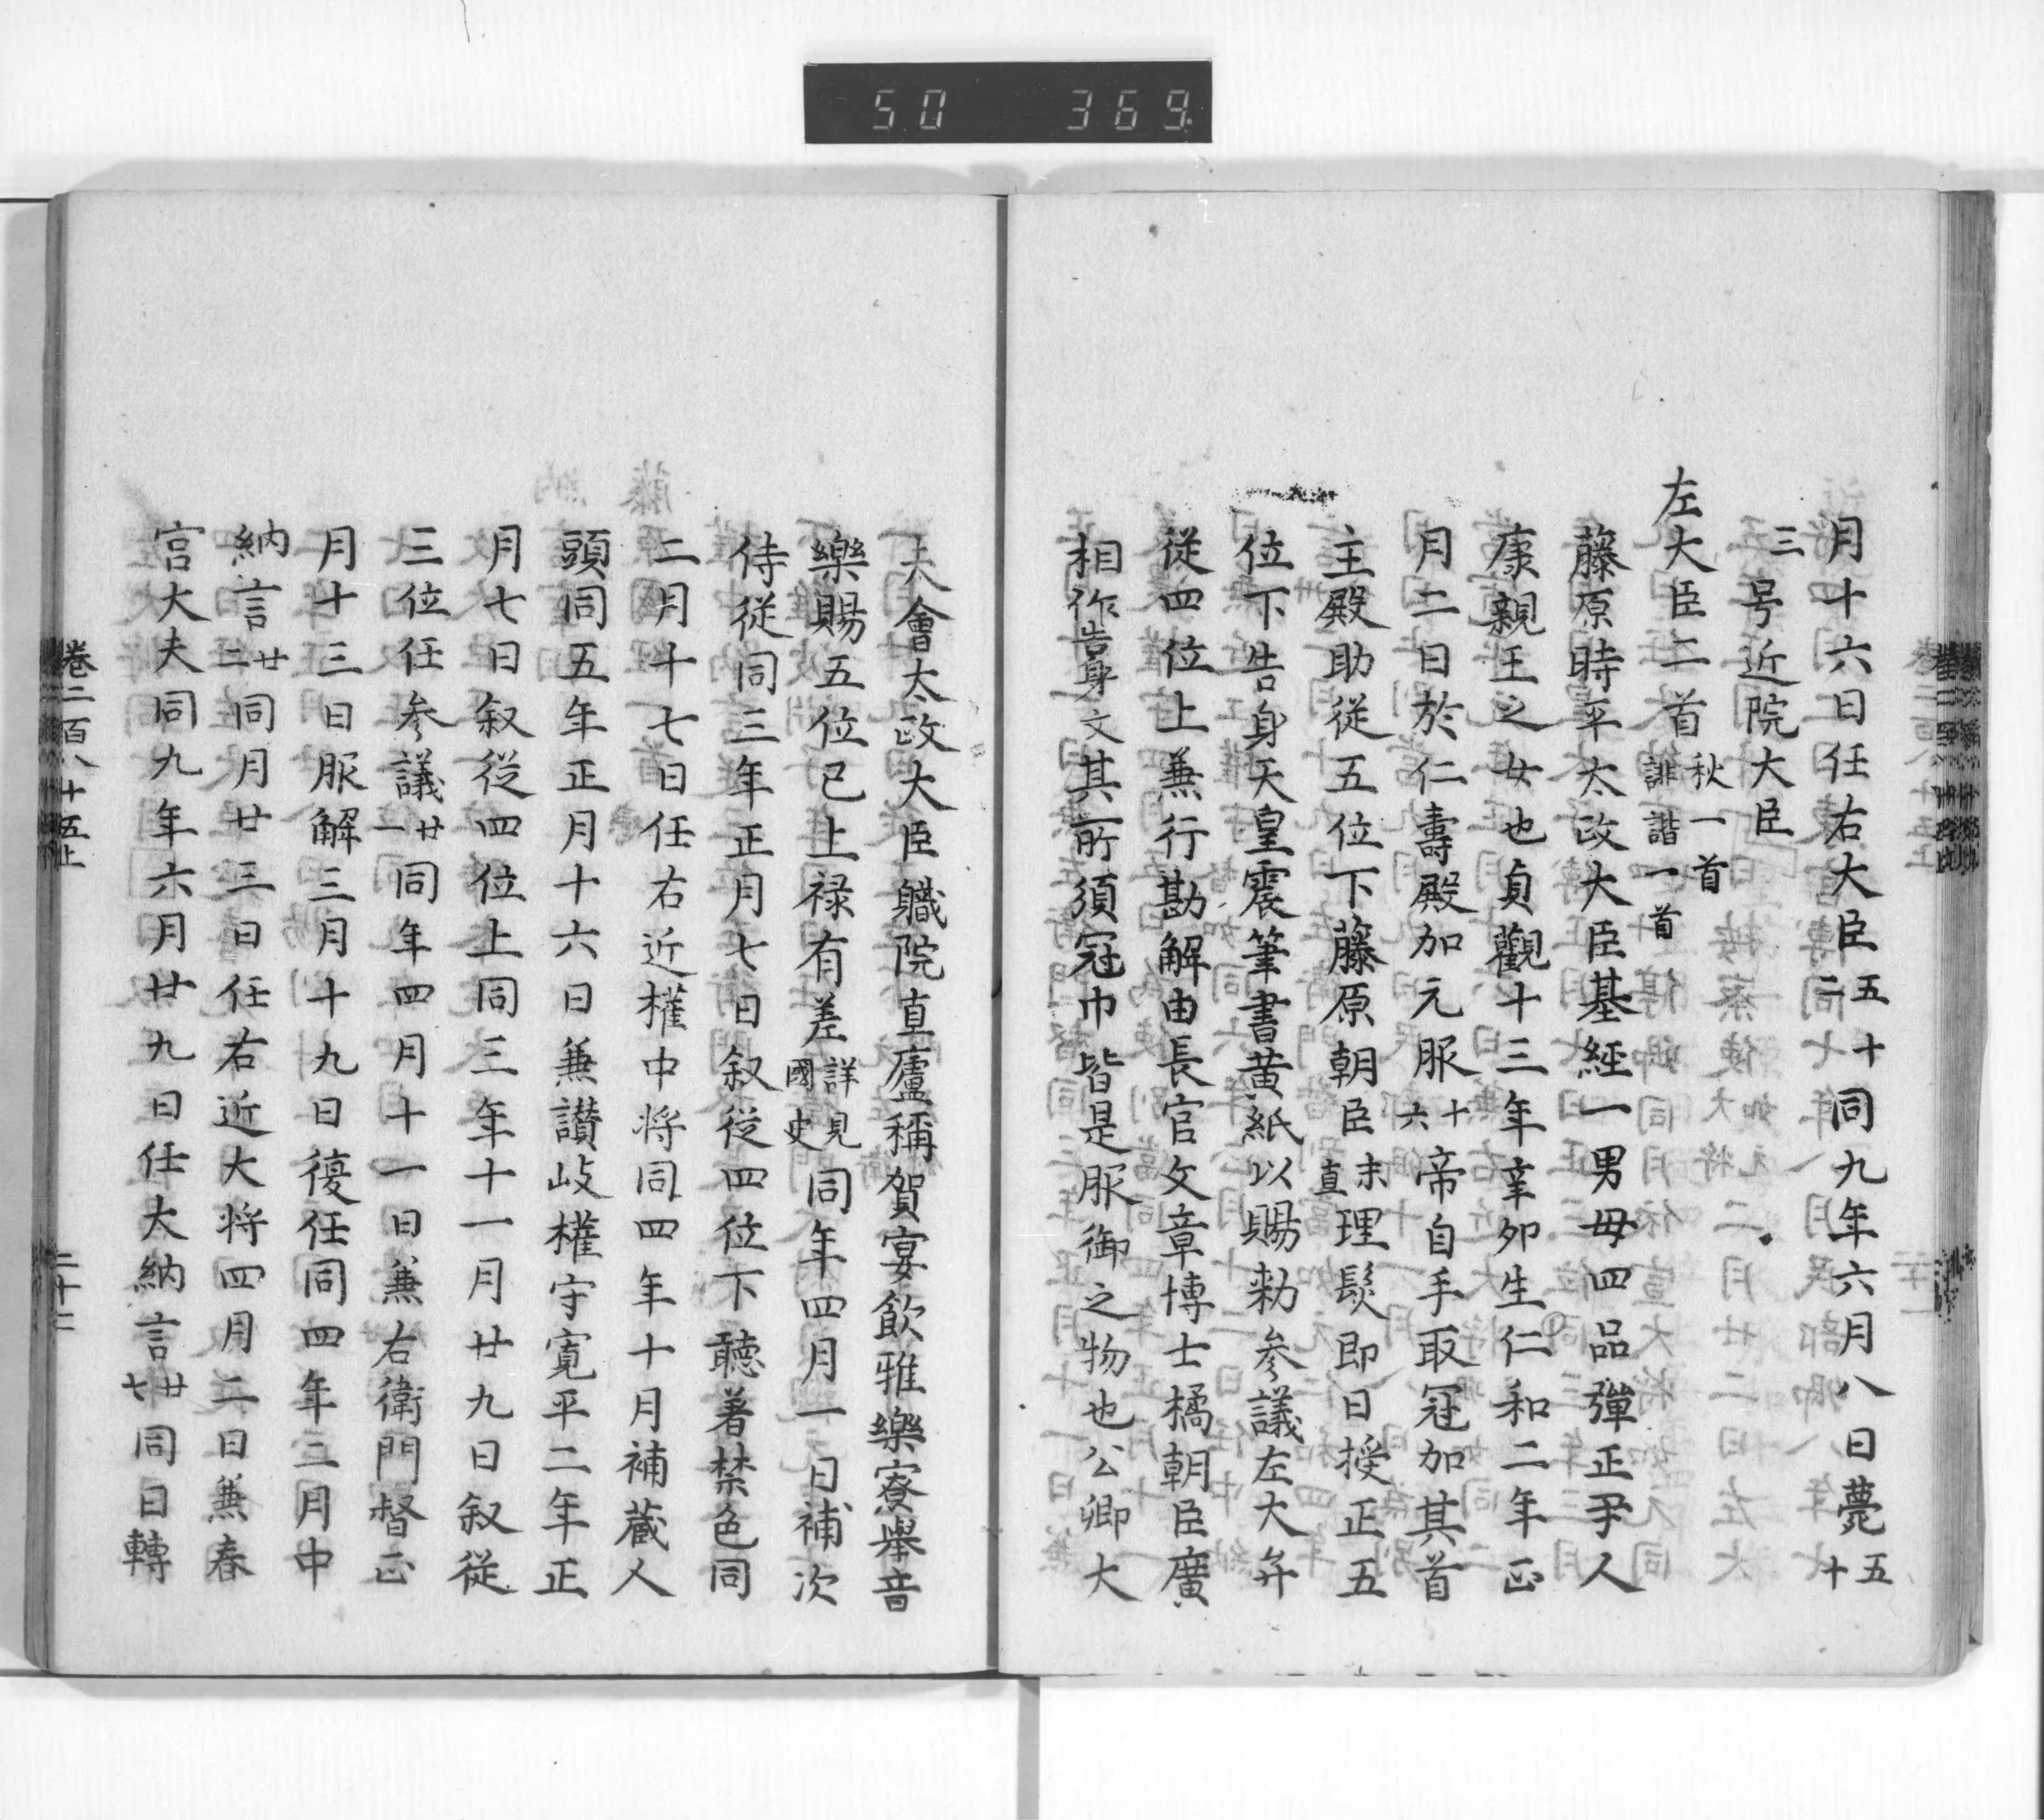 50 369
月十六日任右大臣五十二同九年六月八日薨五十
三号近院大臣
左大臣二首秋一首誹諧一首
藤原時平太政大臣基經一男母四品彈正尹人
康親王之女也貞觀十三年辛夘生仁和二年正
月二日於仁壽殿加元服十六帝自手取冠加其首
主殿助從五位下藤原朝臣末直理髮即日授正五
位下告身天皇震筆書黄紙以賜勅参議左大弁
從四位上兼行勘解由長官文章博士橘朝臣廣
相作告身文其所須冠巾皆是服御之物也公卿大
夫會太政大臣職院直廬稱賀宴飲雅樂寮舉音
樂賜五位已上禄有差詳見國史同年四月一日補次
侍從同三年正月七日叙從四位下聽著禁色同
二月十七日任右近權中将同四年十月補蔵人
頭同五年正月十六日兼讃岐權守寛平二年正
月七日叙從四位上同三年十一月廿九日叙從
三位任参議廿一同年四月十一日兼右衛門督正
月十三日服解三月十九日復任同四年三月中
納言廿二同月廿三日任右近大将四月二日兼春
宮大夫同九年六月廿九日任大納言廿七同日轉
巻二百八十五上
二十二